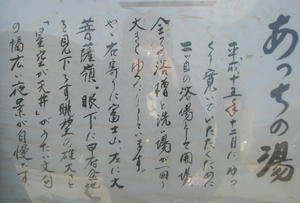 あっちの湯
平成十五年十二月にゆっ
くり寛いでいただくために
二ツ目の浴場として開場
全ての浴槽と洗い場が一回り
大きくゆったりとしています。
やゝ右寄りに富士山、左に大
菩薩嶺。眼下に甲府盆地
を見下ろす眺望の雄大さと
「星空が天井」がうたい文句
の幅広い夜景が自慢です